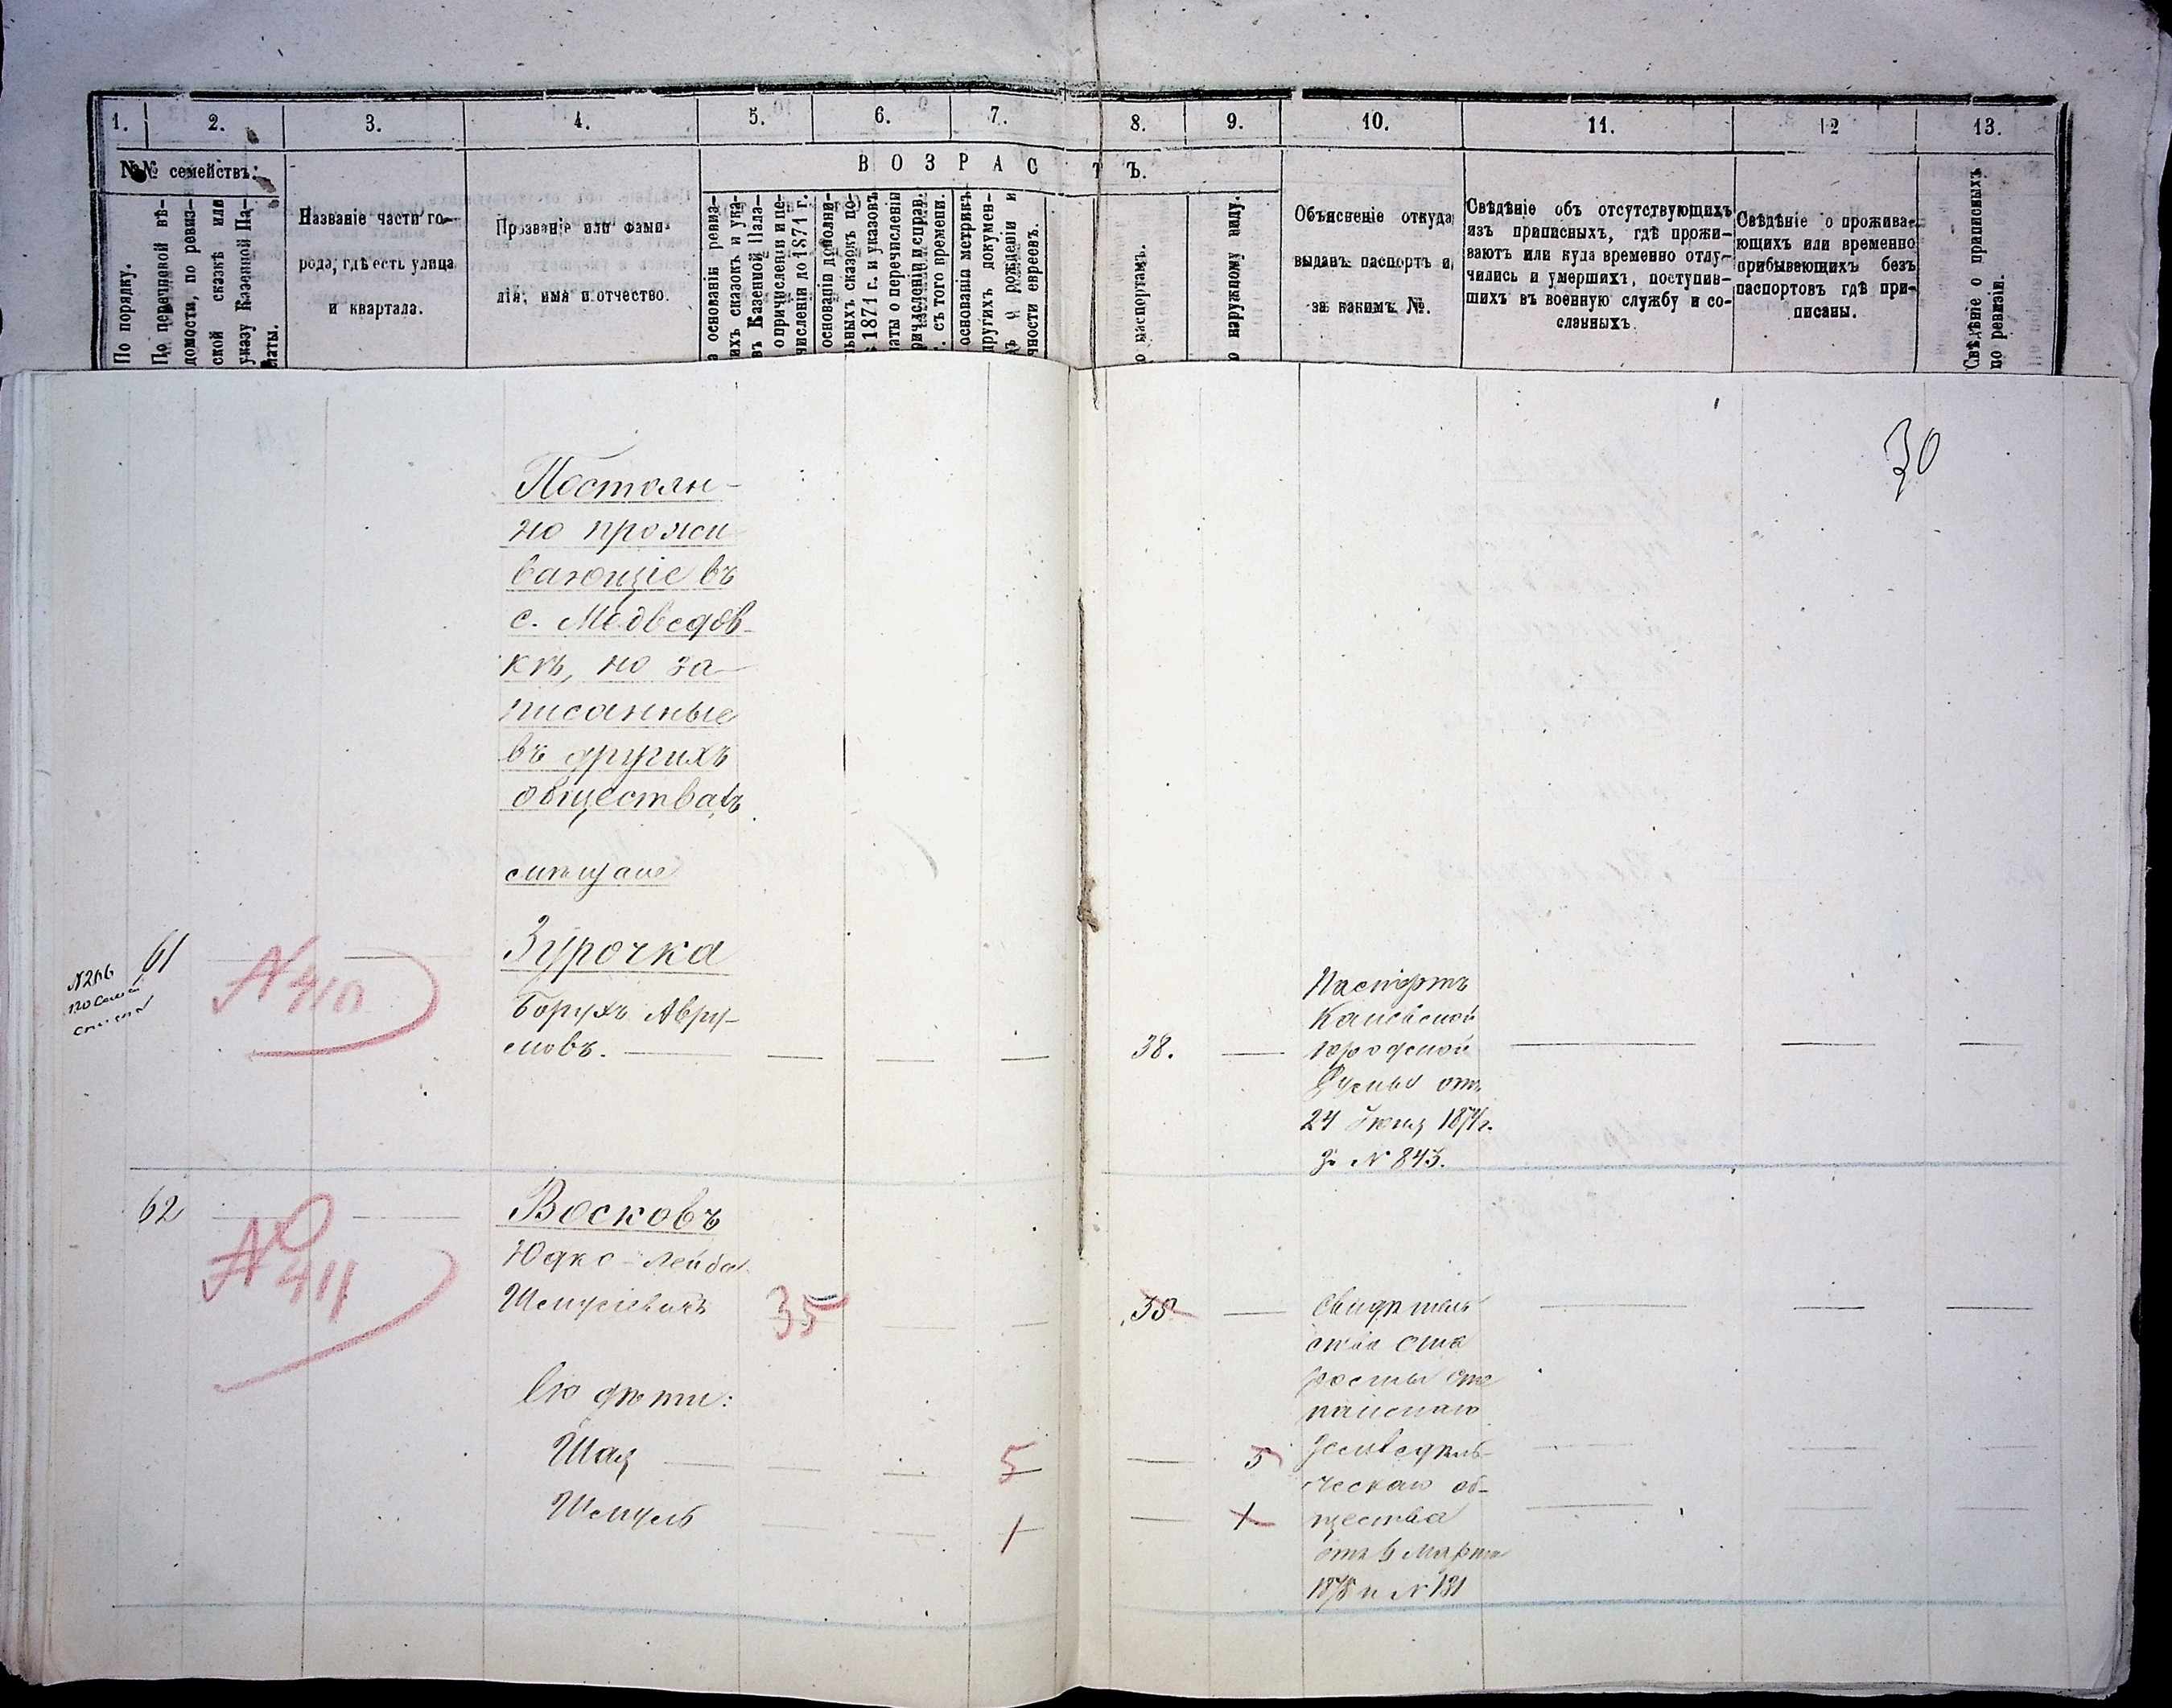 1. 2. 3. 4. 5. 6. 7. 8. 9. 10. 11. 12 13.
№№ семействъ:
ВОЗРАСТЪ.
По порядку.
По перечневой вѣ-
домости, по ревиз-
ской сказкѣ или
указу Казенной Па-
латы.
Названіе части го-
рода, гдѣ есть улица
и квартала.
Прозваніе или фами-
лія, имя и отчество.
основаніи ревиз-
ихъ сказокъ и ука-
въ Казенной Пала-
о причисленіи и пе-
численіи до 1871 г.
основаніи дополни-
льныхъ сказокъ по-
1871 г. и указовъ
латы о перечисленіи
ричисленіи и справ.
съ того времени.
основаніи метрикъ
другихъ докумен-
ъ о рожденіи и
чности евреевъ.
о паспортамъ.
о наружному виду.
Объясненіе откуда
выданъ паспортъ и
за какимъ №.
Свѣдѣніе объ отсутствующихъ
изъ приписныхъ, гдѣ прожи-
ваютъ или куда временно отлу-
чились и умершихъ, поступив-
шихъ въ военную службу и со-
сланныхъ.
Свѣдѣніе о прожива-
ющихъ или временно
прибывающихъ безъ
паспортовъ гдѣ при-
писаны.
Свѣдѣніе о приписныхъ
по ревизіи.
30
Постоян-
но прожи
вающіе въ
с. Медведов-
кѣ, но за-
писанные
въ другихъ
обществахъ
мѣщане
61
№ 410
Зурочка
Борухъ Авру-
мовъ.
38.
Паспортъ
Каневской
городской
Думы отъ
24 Іюня 1874 г.
за № 843.
62
№ 411
Восковъ
Юдко-Лейба
Шмулевичъ
35
35
Свидѣтель
ство Ста
росты
земледѣль-
ческаго об-
щества
Его дѣти:
Шая
5
5
Шмуль
1
1
отъ 6 Марта
1875 г. № 131